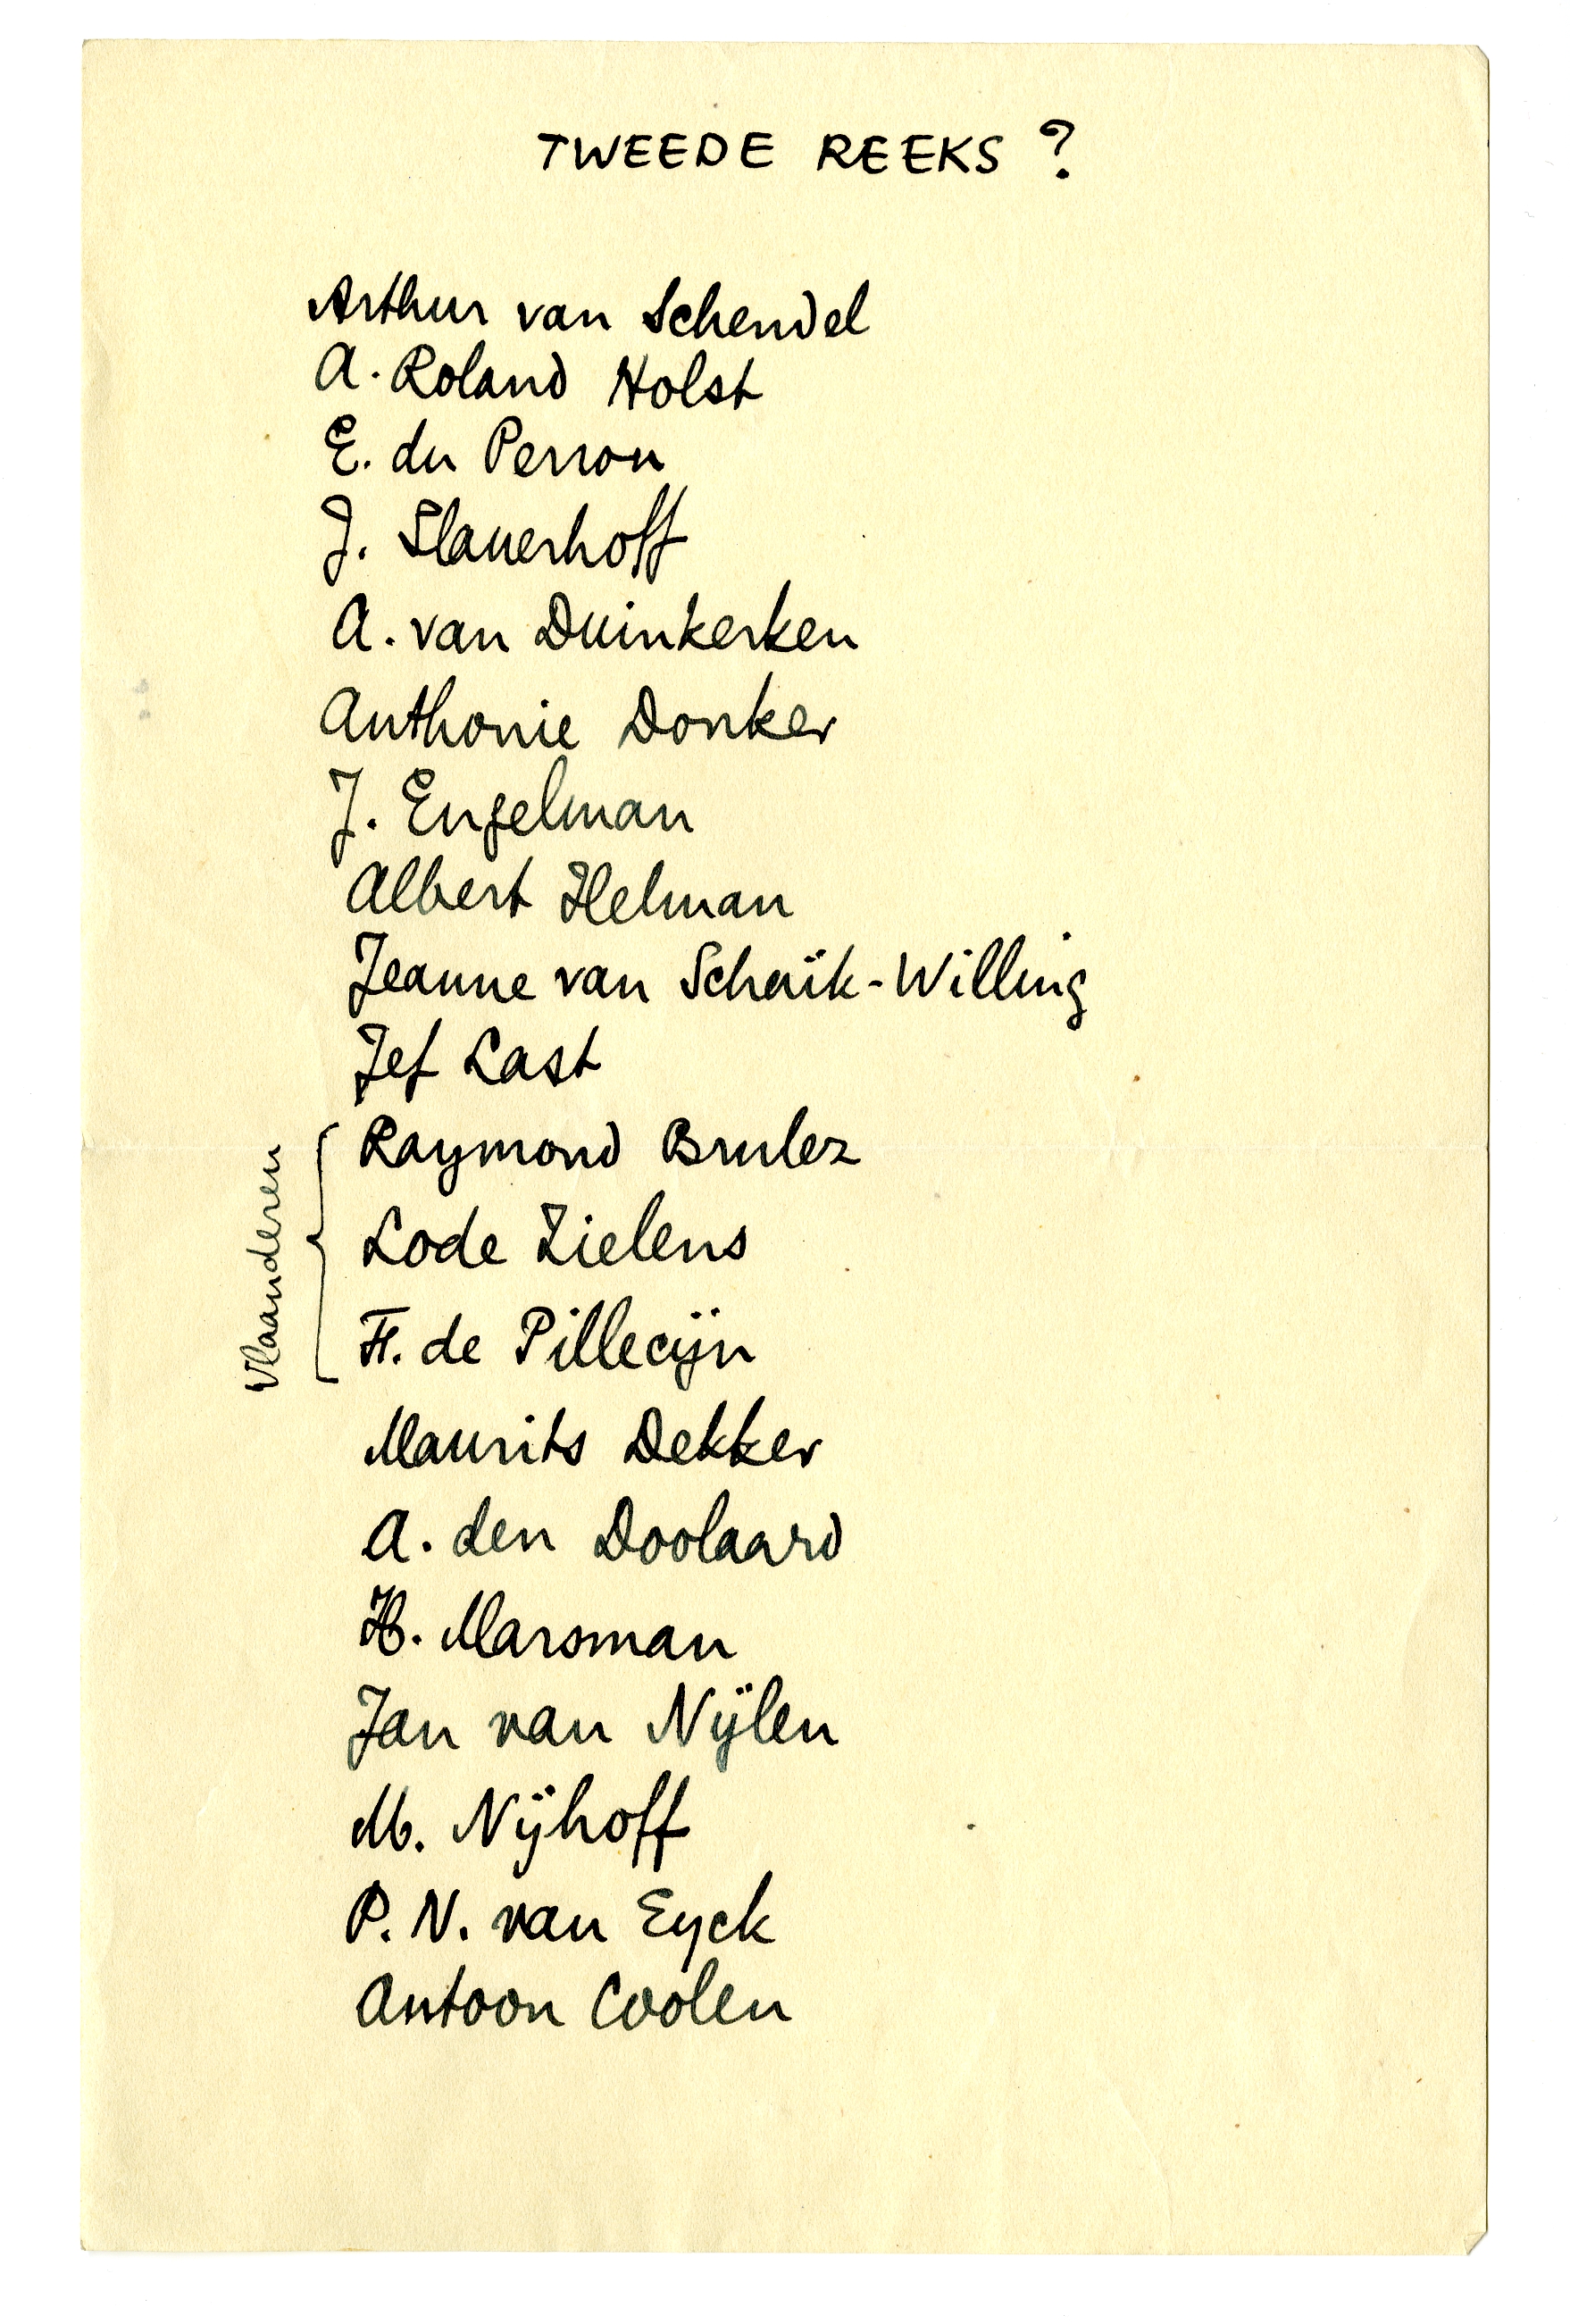 TWEEDE REEKS ?
Arthur van Schendel
A. Roland Holst
E. du Perron
J. Slauerhoff
A. van Duinkerken
Anthonie Donker
J. Engelman
Albert Helman
Jeanne van Schaïk-Willing
Jef Last
Vlaanderen
Raymond Brulez
Lode Zielens
F. de Pillecijn
Maurits Dekker
A. den Doolaard
H. Marsman
Jan van Nijlen
M. Nijhoff
P. N. van Eyck
Antoon Coolen